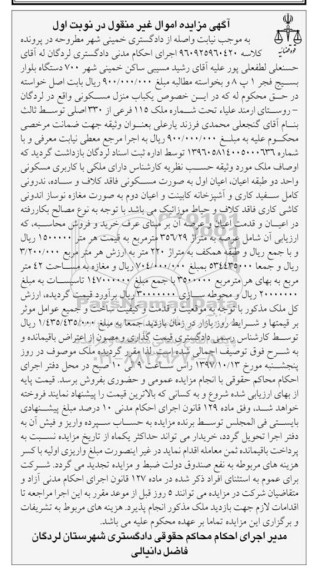 آگهی مزایده اموال غیر منقول در نوبت اول
به موجب نیابت واصله از دادگستری خمینی شهر مطروحه در پرونده
کلاسه ۹۶۰۹۲۵۹۶۰۴۲۰ اجرای احکام مدنی دادگستری لردگان له آقای
حسنعلی لطفعلی پور علیه آقای رشید مسیبی ساکن خمینی شهر ۷۰۰ دستگاه بلوار
بسیج فجر ۱ پ ۸ و بخواسته مطالبه مبلغ ۹۰۰/۰۰۰/۰۰۰ ریال بابت اصل خواسته
در حق محکوم له که در این خصوص یکباب منزل مسکونی واقع در لردگان
– روستای ارمند علیاء تحت شماره ملک ۱۱۵ فرعی از ۳۳۰ اصلی توسط ثالث
بنام آقای گنجعلی محمدی فرزند یارعلی بعنوان وثیقه جهت ضمانت مرخصی
محکوم علیه به مبلغ ۹۰۰/۰۰۰/۰۰۰ ریال به اجرا مرجع معطی نیابت معرفی و با
شماره ۱۳۹۶۰۵۸۱۴۰۰۵۰۰۰۶۳۶ توسط اداره ثبت اسناد لردگان بازداشت گردید که
اوصاف ملک مورد وثیقه حسب نظریه کارشناس دارای ملکی با کاربری مسکونی
واحد دو طبقه اعیان، اعیان اول به صورت مسکونی فاقد کلاف و ساده، ندرونی
کامل سفید کاری و آشپزخانه کابینت و اعیان دوم به صورت مغازه نوساز اندونی
کاشی کاری فاقد کلاف و حیاط موزائیک می باشد با توجه به نوع مصالح بکاررفته
در اعیان و قدمت اعیان و عرصه آن بر مبنای عرف خرید و فروش محاسبه، که
ارزیابی آن شامل عرصه به متراژ ۳۵۶/۲۹ مترمربع به قیمت هر متر ۱۵۰۰۰۰۰ ریال
و با جمع ریال و طبقه همکف به متراژ ۲۲۰ متر به ارزش هر متر مربع ۳/۲۰۰/۰۰۰
ریال و جمعا ۵۳۴۴۳۵۰۰۰ بمبلغ ۷۰۴/۰۰۰/۰۰۰ ریال و مغازه به مساحت ۴۲ متر
مربع به بهای هر مترمربع ۳۵۰۰۰۰۰ با جمع مبلغ ۱۴۷۰۰۰۰۰۰ تاسیسات به مبلغ
۲۰۰۰۰۰۰۰ ریال و محوطه سازی ۳۰۰۰۰۰۰۰ ریال برآورد قیمت گردیده، ارزش
کل ملک مذکور با توجه به موقعیت و قدمت و کیفیت ساخت و جمیع عوامل موثر
بر قیمتها و شرایط روز بازار در زمان بازدید جمعا به مبلغ ۱/۴۳۵/۴۳۵/۰۰۰ ریال
توسط کارشناس رسمی دادگستری قیمت گذاری و مصون از اعتراض باقیمانده و
به شرح فوق توصیف اجمالی شده است. لذا مقرر گردیده ملک موصوف در روز
پنجشنبه مورخ ۱۳۹۷/۱۰/۱۳ راس ساعت ۹ الی ۱۰ صبح در محل دفتر اجرای
احکام محاکم حقوقی با انجام مزایده عمومی و حضوری بفروش برسد. قیمت پایه
از بهای ارزیابی شده شروع و به کسانی که بالاترین قیمت را پیشنهاد نمایند فروخته
خواهد شد، وفق ماده ۱۲۹ قانون اجرای احکام مدنی ۱۰ درصد مبلغ پیشنهادی
بایستی فی المجلس توسط برنده مزایده به حساب سپرده واریز و فیش آن به
دفتر اجرا تحویل گردد، خریدار می تواند حداکثر یکماه از تاریخ مزایده نسبت به
پرداخت باقیمانده ثمن معامله اقدام نماید در غیر اینصورت مبلغ واریزی اولیه با کسر
هزینه های مربوطه به نفع صندوق دولت ضبط و مزایده تجدید می گردد. شرکت
برای عموم به استثنای افراد ذکر شده در ماده ۱۲۷ قانون اجرای احکام مدنی آزاد و
متقاضیان شرکت در مزایده می توانند ۵ روز قبل از موعد مقرر به این اجرا مراجعه تا
اقدامات لازم جهت بازدید ملک مذکور انجام پذیرد. هزینه های مربوط به تشریفات
و برگزاری این مزایده تماما بر عهده محکوم علیه می باشد.
مدیر اجرای احکام محاکم حقوقی دادگستری شهرستان لردگان
فاضل دانیالی